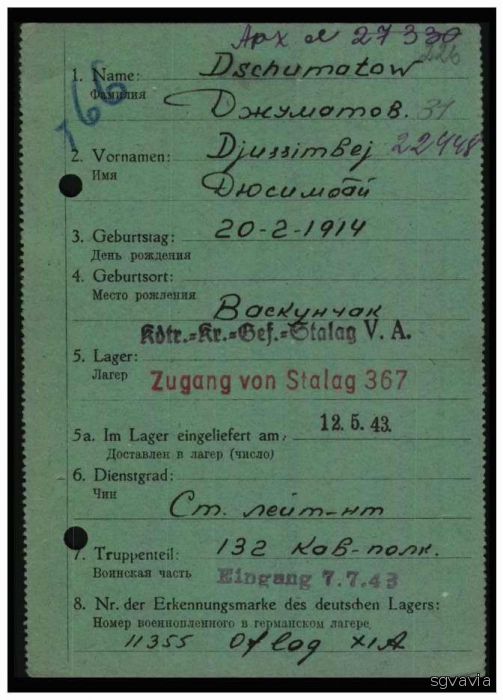 Арх № 27330
226
166
1. Name: Dschumatow
Фамилия Джуматов. 31
2. Vornamen: Djussimbej 22448
Имя Дюсимбай
3. Geburtstag: 20-2-1914
День рождения
4. Geburtsort:
Место рожления
Васкунчак
Kdtr.=Kr.=Gef.=Stalag V. A.
5. Lager:
Лагер Zugang von Stalag 367
5a. Im Lager eingeliefert am: 12.5.43.
Доставлен в лагер (число)
6. Dienstgrad:
Чин
Ст. лейт-нт
7. Truppenteil: 132 кав-полк.
Воинская часть Eingang 7.7.43
8. Nr. der Erkennungsmarke des deutschen Lagers:
Номер военнопленного в германском лагере
11355 Oflag XIA
sgvavia